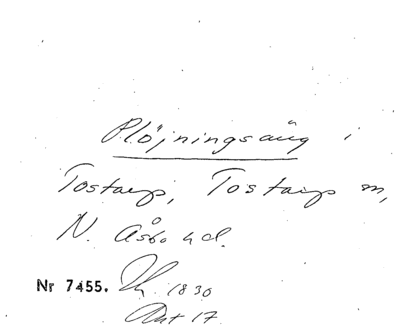 Plöjningsäng i
Tostarp, Tostarps sn,
N. Åsbo hd.
Nr 7455. 1830
Ant 17